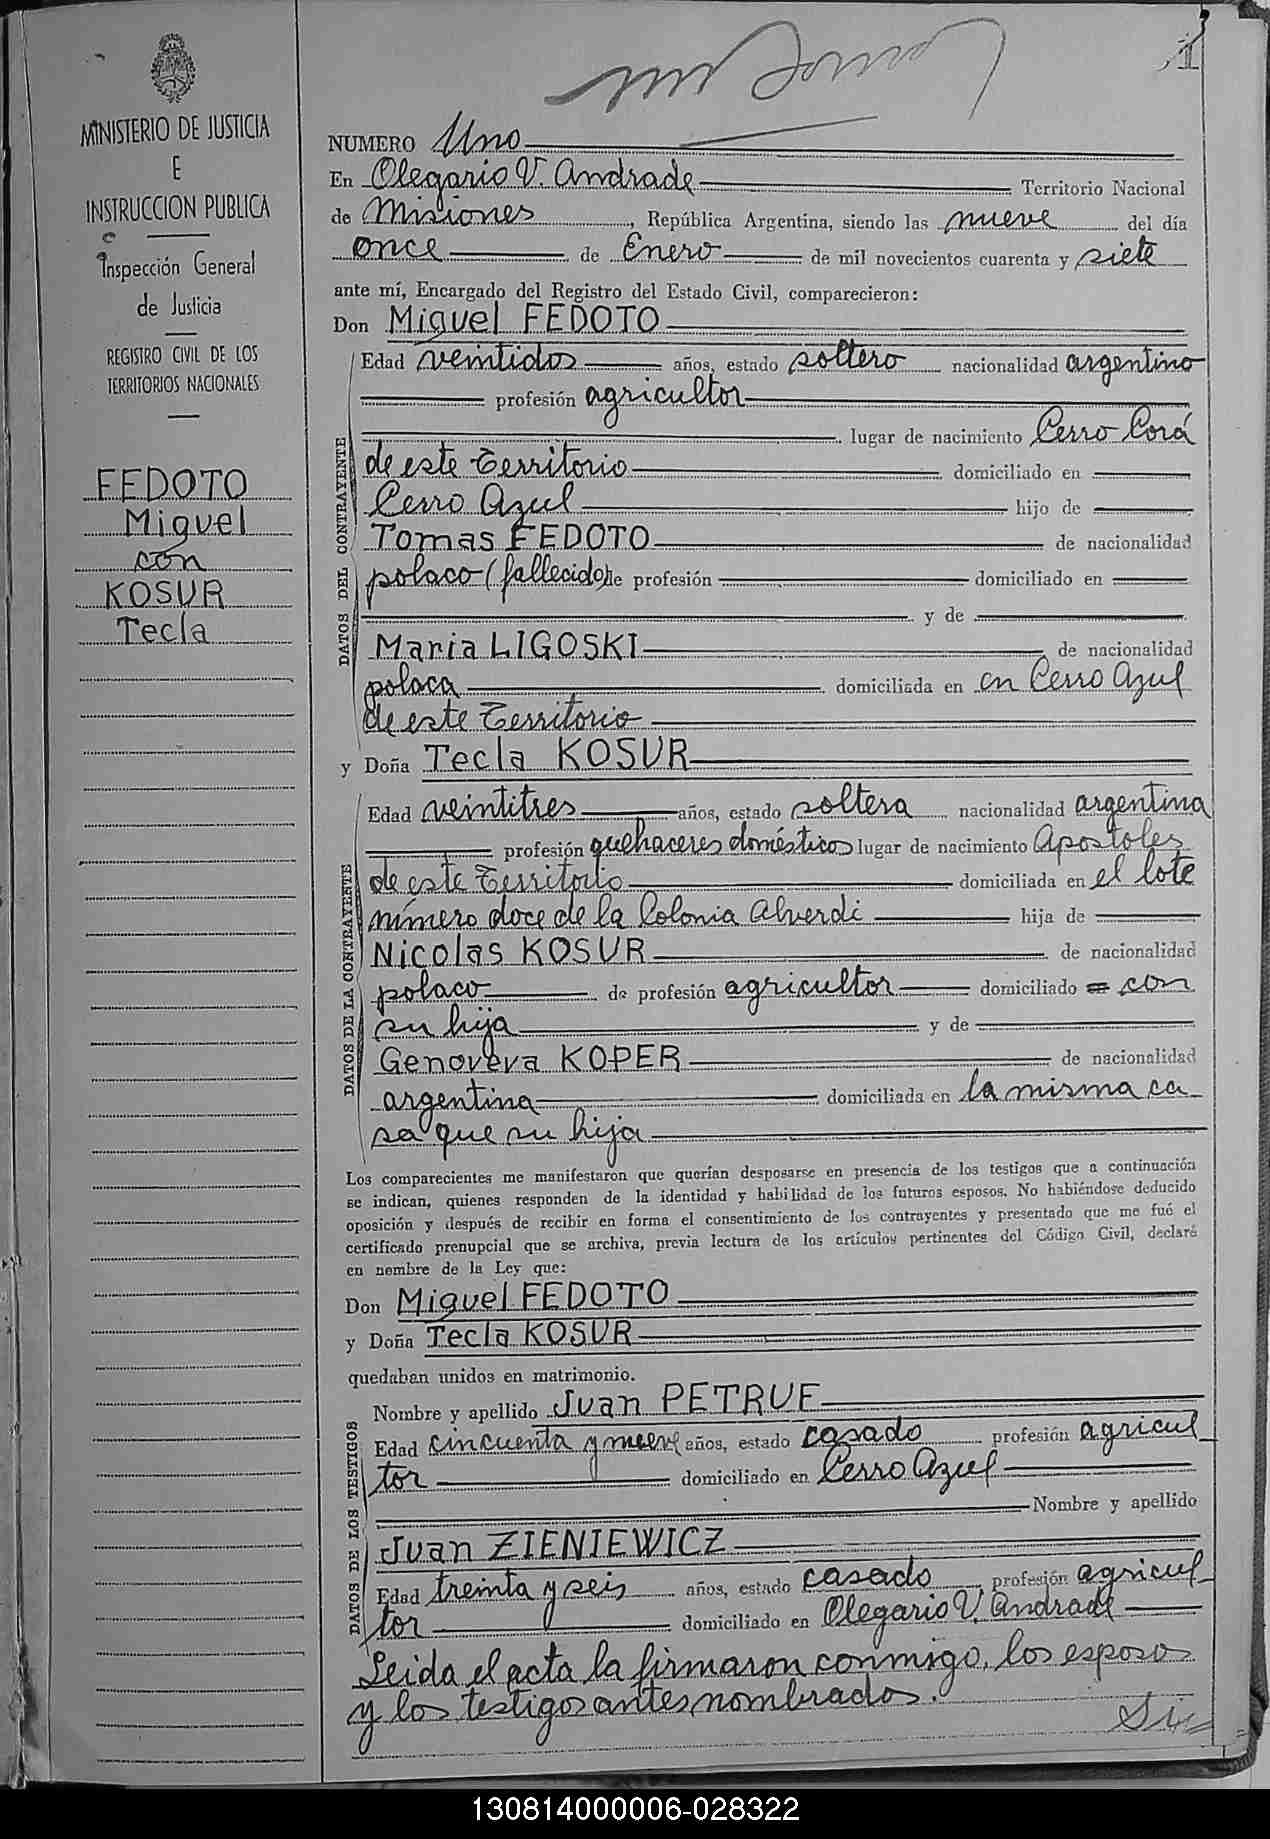 1
MINISTERIO DE JUSTICIA
E
INSTRUCCION PUBLICA
Inspección General
de Justicia
REGISTRO CIVIL DE LOS
TERRITORIOS NACIONALES
FEDOTO
Miguel
con
KOSUR
Tecla
NUMERO Uno
En Olegario V. Andrade Territorio Nacional
de Misiones, República Argentina, siendo las nueve del día
once de Enero de mil novecientos cuarenta y siete
ante mí, Encargado del Registro del Estado Civil, comparecieron:
Don Miguel FEDOTO
DATOS DEL CONTRAYENTE
Edad veintidos años, estado soltero nacionalidad argentino
profesión agricultor
lugar de nacimiento Cerro Corá
de este Territorio domiciliado en
Cerro Azul hijo de
Tomas FEDOTO de nacionalidad
polaco (fallecido) de profesión domiciliado en
y de
Maria LIGOSKI de nacionalidad
polaca domiciliada en en Cerro Azul
de este Territorio
y Doña Tecla KOSUR
DATOS DE LA CONTRAYENTE
Edad veintitres años, estado soltera nacionalidad argentina
profesión quehaceres domésticos lugar de nacimiento Apostoles
de este Territorio domiciliada en el lote
número doce de la Colonia Alverdi hija de
Nicolas KOSUR de nacionalidad
polaco de profesión agricultor domiciliado con
su hija y de
Genoveva KOPER de nacionalidad
argentina domiciliada en la misma ca
sa que su hija
Los comparecientes me manifestaron que querían desposarse en presencia de los testigos que a continuación
se indican, quienes responden de la identidad y habilidad de los futuros esposos. No habiéndose deducido
oposición y después de recibir en forma el consentimiento de los contrayentes y presentado que me fué el
certificado prenupcial que se archiva, previa lectura de los artículos pertinentes del Código Civil, declaré
en nombre de la Ley que:
Don Miguel FEDOTO
y Doña Tecla KOSUR
quedaban unidos en matrimonio.
DATOS DE LOS TESTIGOS
Nombre y apellido Juan PETRUF
Edad cincuenta y nueve años, estado casado profesión agricul
tor domiciliado en Cerro Azul
Nombre y apellido
Juan ZIENIEWICZ
Edad treinta y seis años, estado casado profesión agricul
tor domiciliado en Olegario V. Andrade
Leida el acta la firmaron conmigo, los esposos
y los testigos antes nombrados.
130814000006-028322